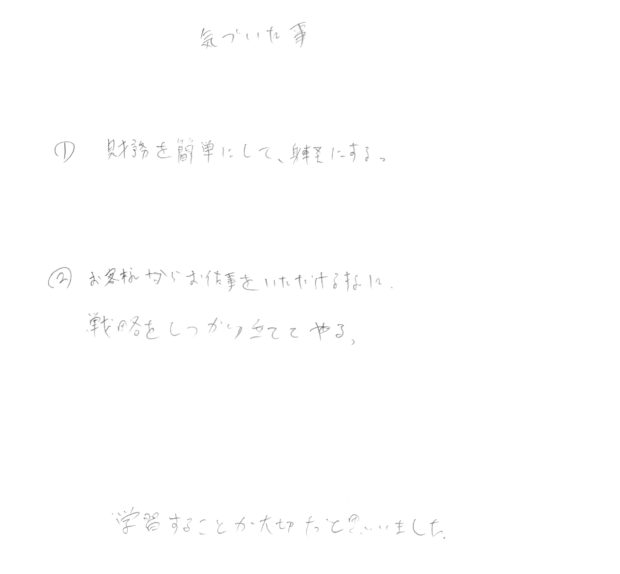 気づいた事
① 財務を簡単にして、身軽にする。
② お客様からお仕事をいただける為に、
戦略をしっかり立ててやる、
学習することが大切だと思いました。